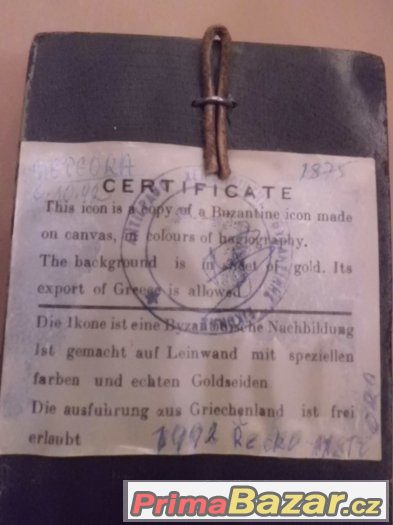 METEORA 1875
6.10.92
CERTIFICATE
This icon is a copy of a Buzantine icon made
on canvas, in colours of hagiography.
The background is in sheet of gold. Its
export of Greece is allowed
Die Ikone ist eine Byzantinische Nachbildung
Ist gemacht auf Leinwand mit speziellen
farben und echten Goldseiden.
Die ausfuhrung aus Griechenland ist frei
erlaubt 1992 Řecko
PrimaBazar.cz